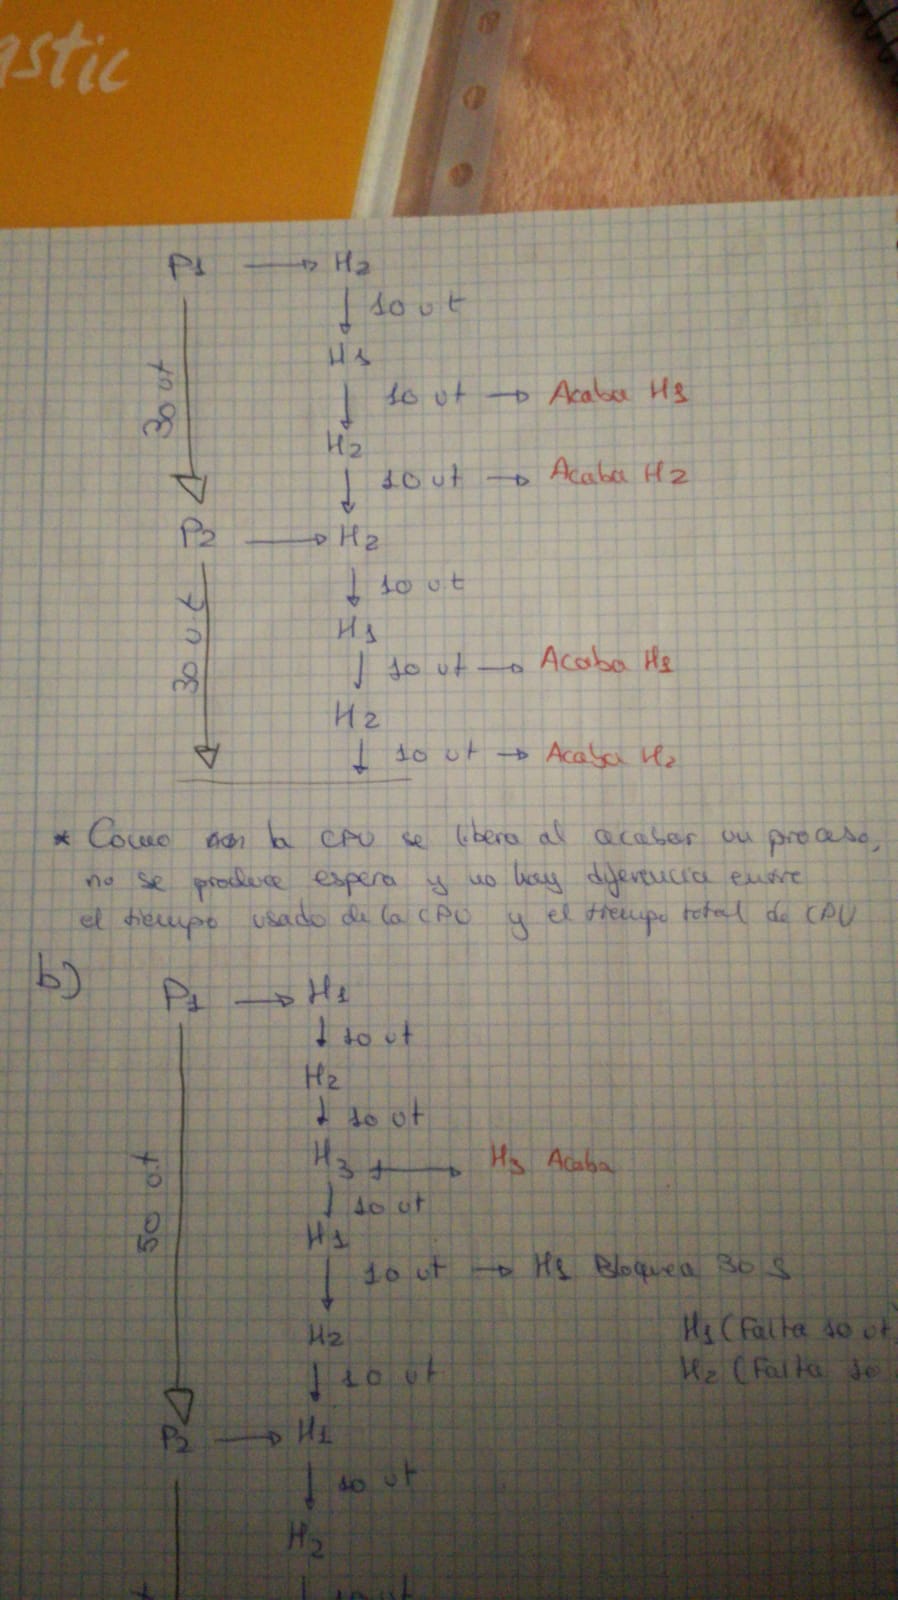 astic
P1 → H2
↓ 10 ut
H1
30 ut
↓ 10 ut → Acaba H1
H2
↓ 10 ut → Acaba H2
P2 → H2
↓ 10 ut
30 ut
H1
↓ 10 ut → Acaba H1
H2
↓ 10 ut → Acaba H2
* Como la CPU se libera al acabar un proceso,
no se produce espera y no hay diferencia entre
el tiempo usado de la CPU y el tiempo total de CPU
b)
P1 → H1
↓ 10 ut
H2
↓ 10 ut
H3 → H3 Acaba
50 ut
↓ 10 ut
H1
↓ 10 ut → H1 Bloquea 30 s
H2
H1 (Falta 10 ut
↓ 10 ut
H2 (Falta 10
P2 → H1
↓ 10 ut
H2
10 ut